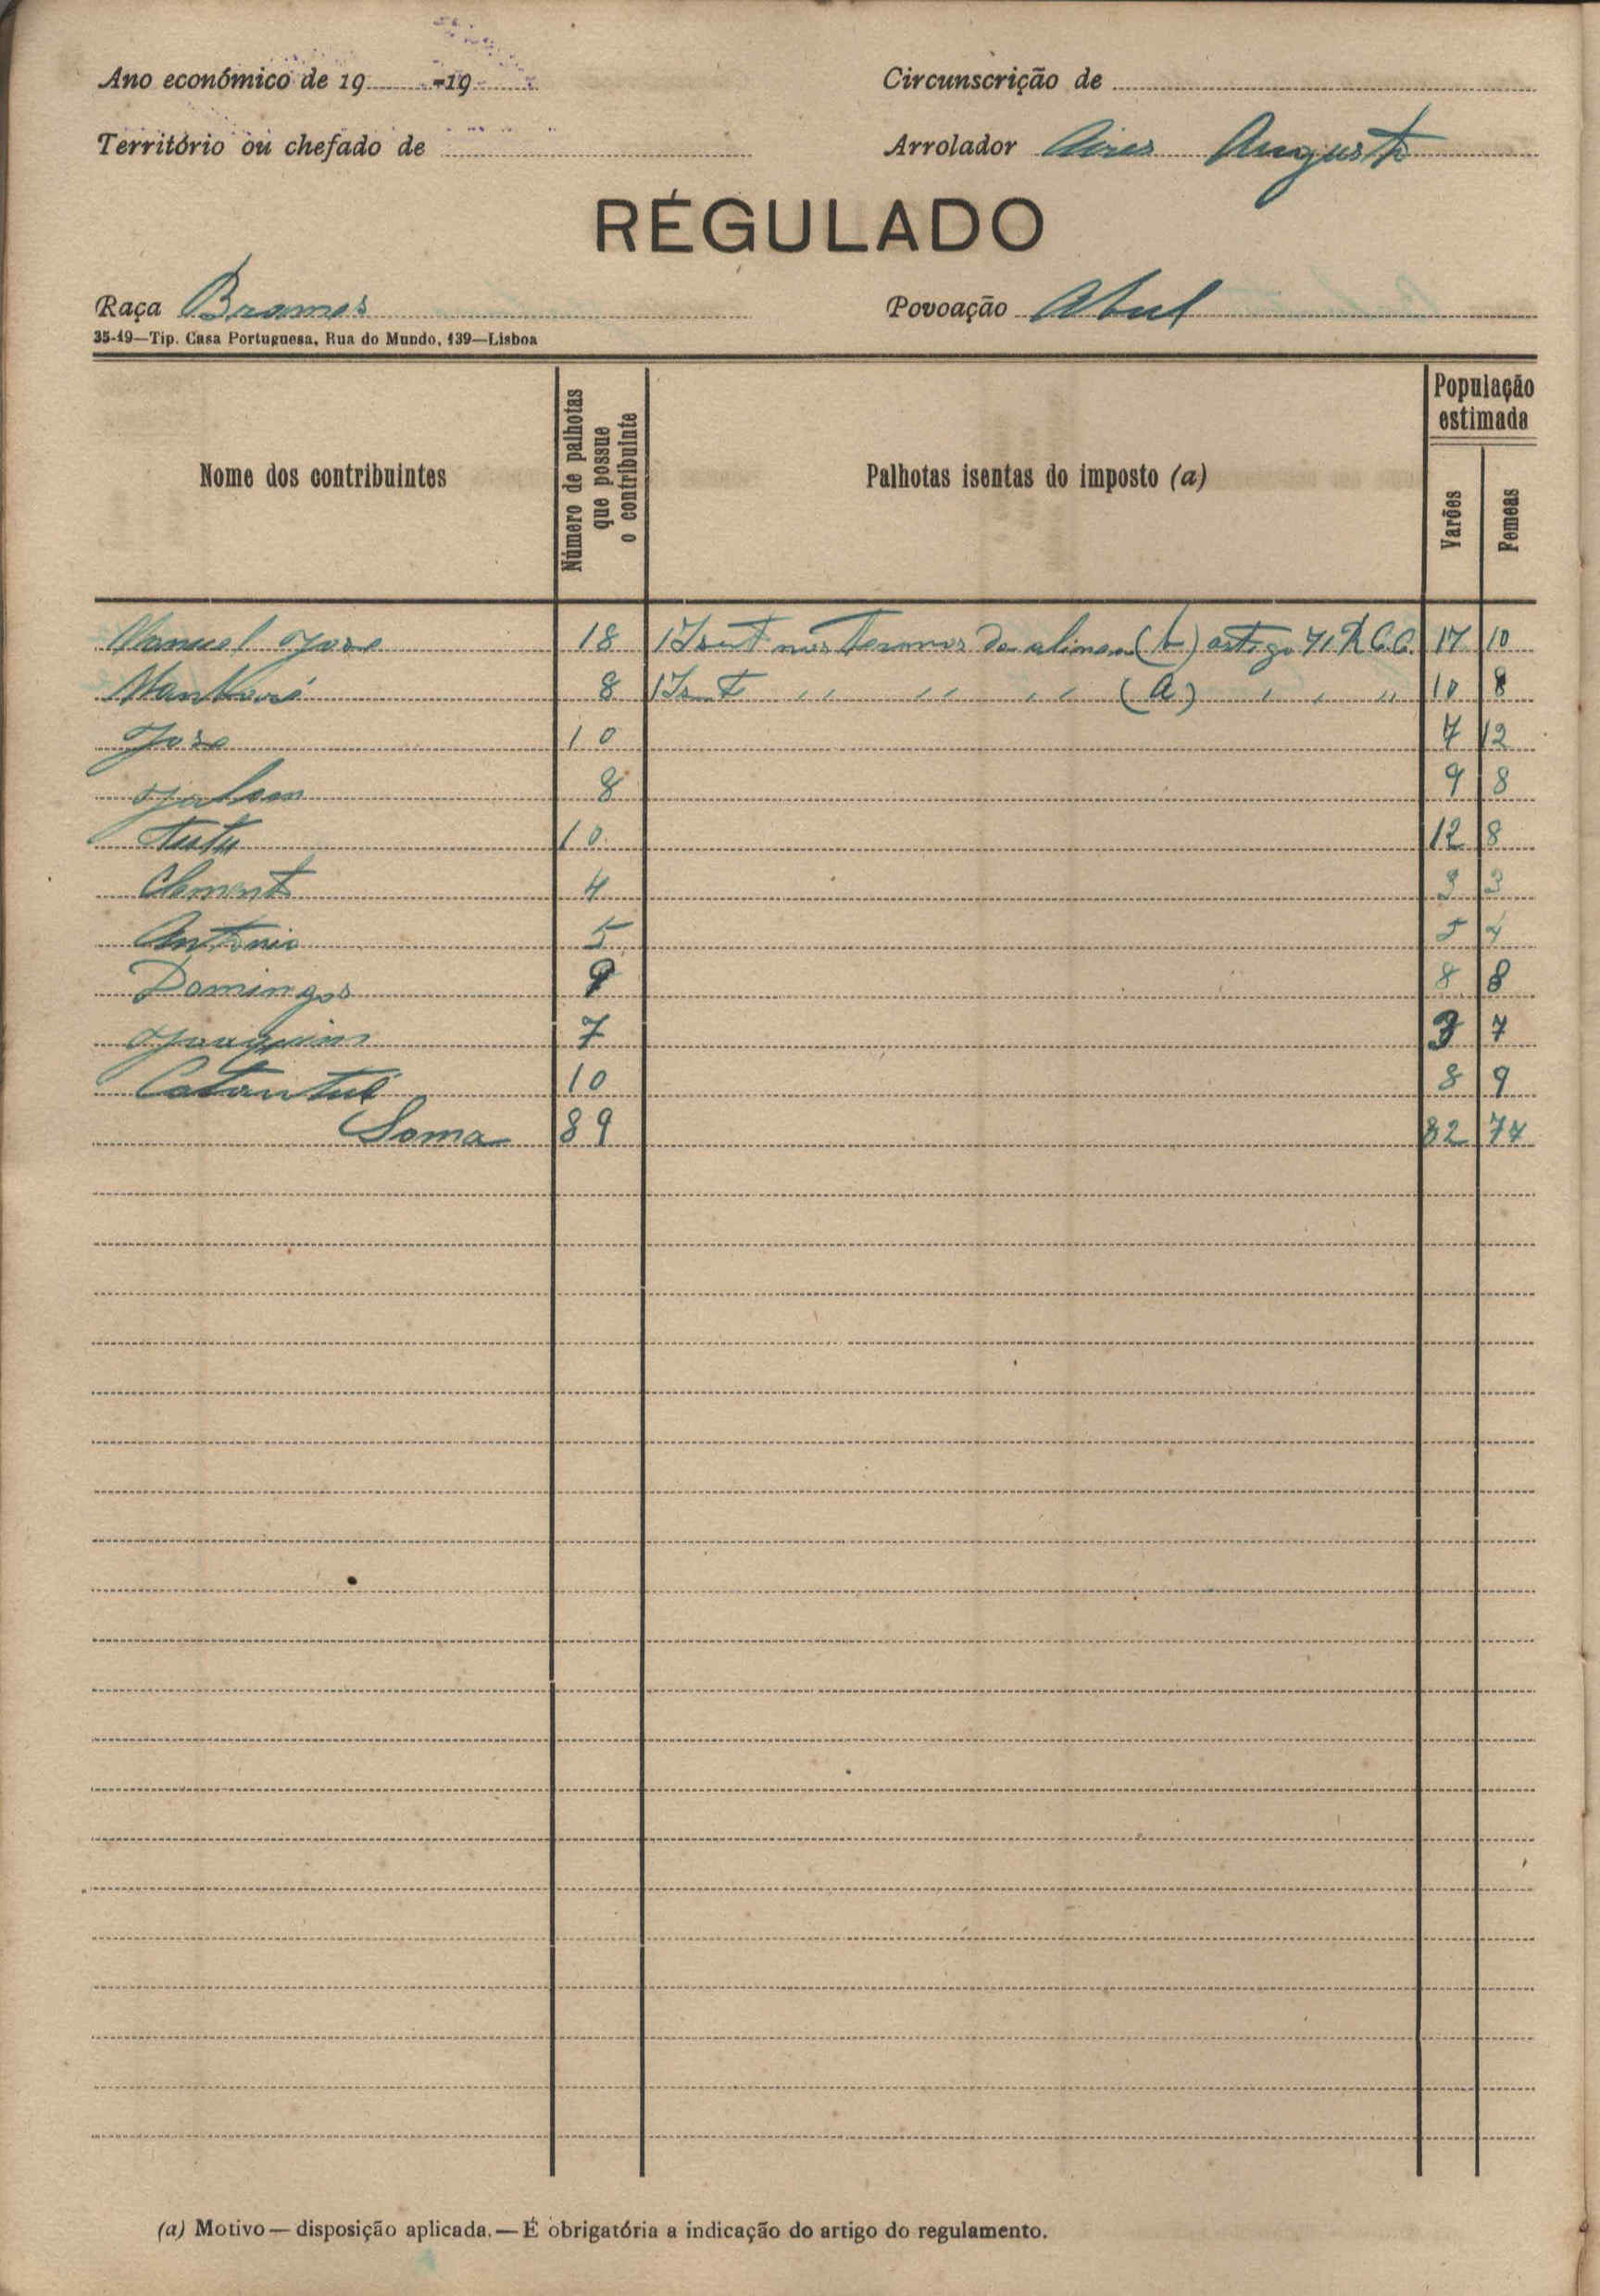 Ano económico de 19 -19
Circunscrição de
Território ou chefado de
Arrolador Aires Augusto
RÉGULADO
Raça Brames
Povoação
35-19—Tip. Casa Portuguesa, Rua do Mundo, 139—Lisboa
Nome dos contribuintes
Número de palhotas que possue o contribuinte
Palhotas isentas do imposto (a)
População estimada
Varões
Femeas
Manuel José 18 1 Isent nos termos da alinea (b) artigo 71 R.C.C. 17 10
8 1 Isent ,, ,, ,, (a) , , ,, 10 8
José 10 7 12
8 9 8
Tutu 10 12 8
Clemente 4 3 3
Antonio 5 5 4
Domingos 9 8 8
Joaquim 7 3 7
10 8 9
Soma 89 82 77
(a) Motivo — disposição aplicada. — É obrigatória a indicação do artigo do regulamento.